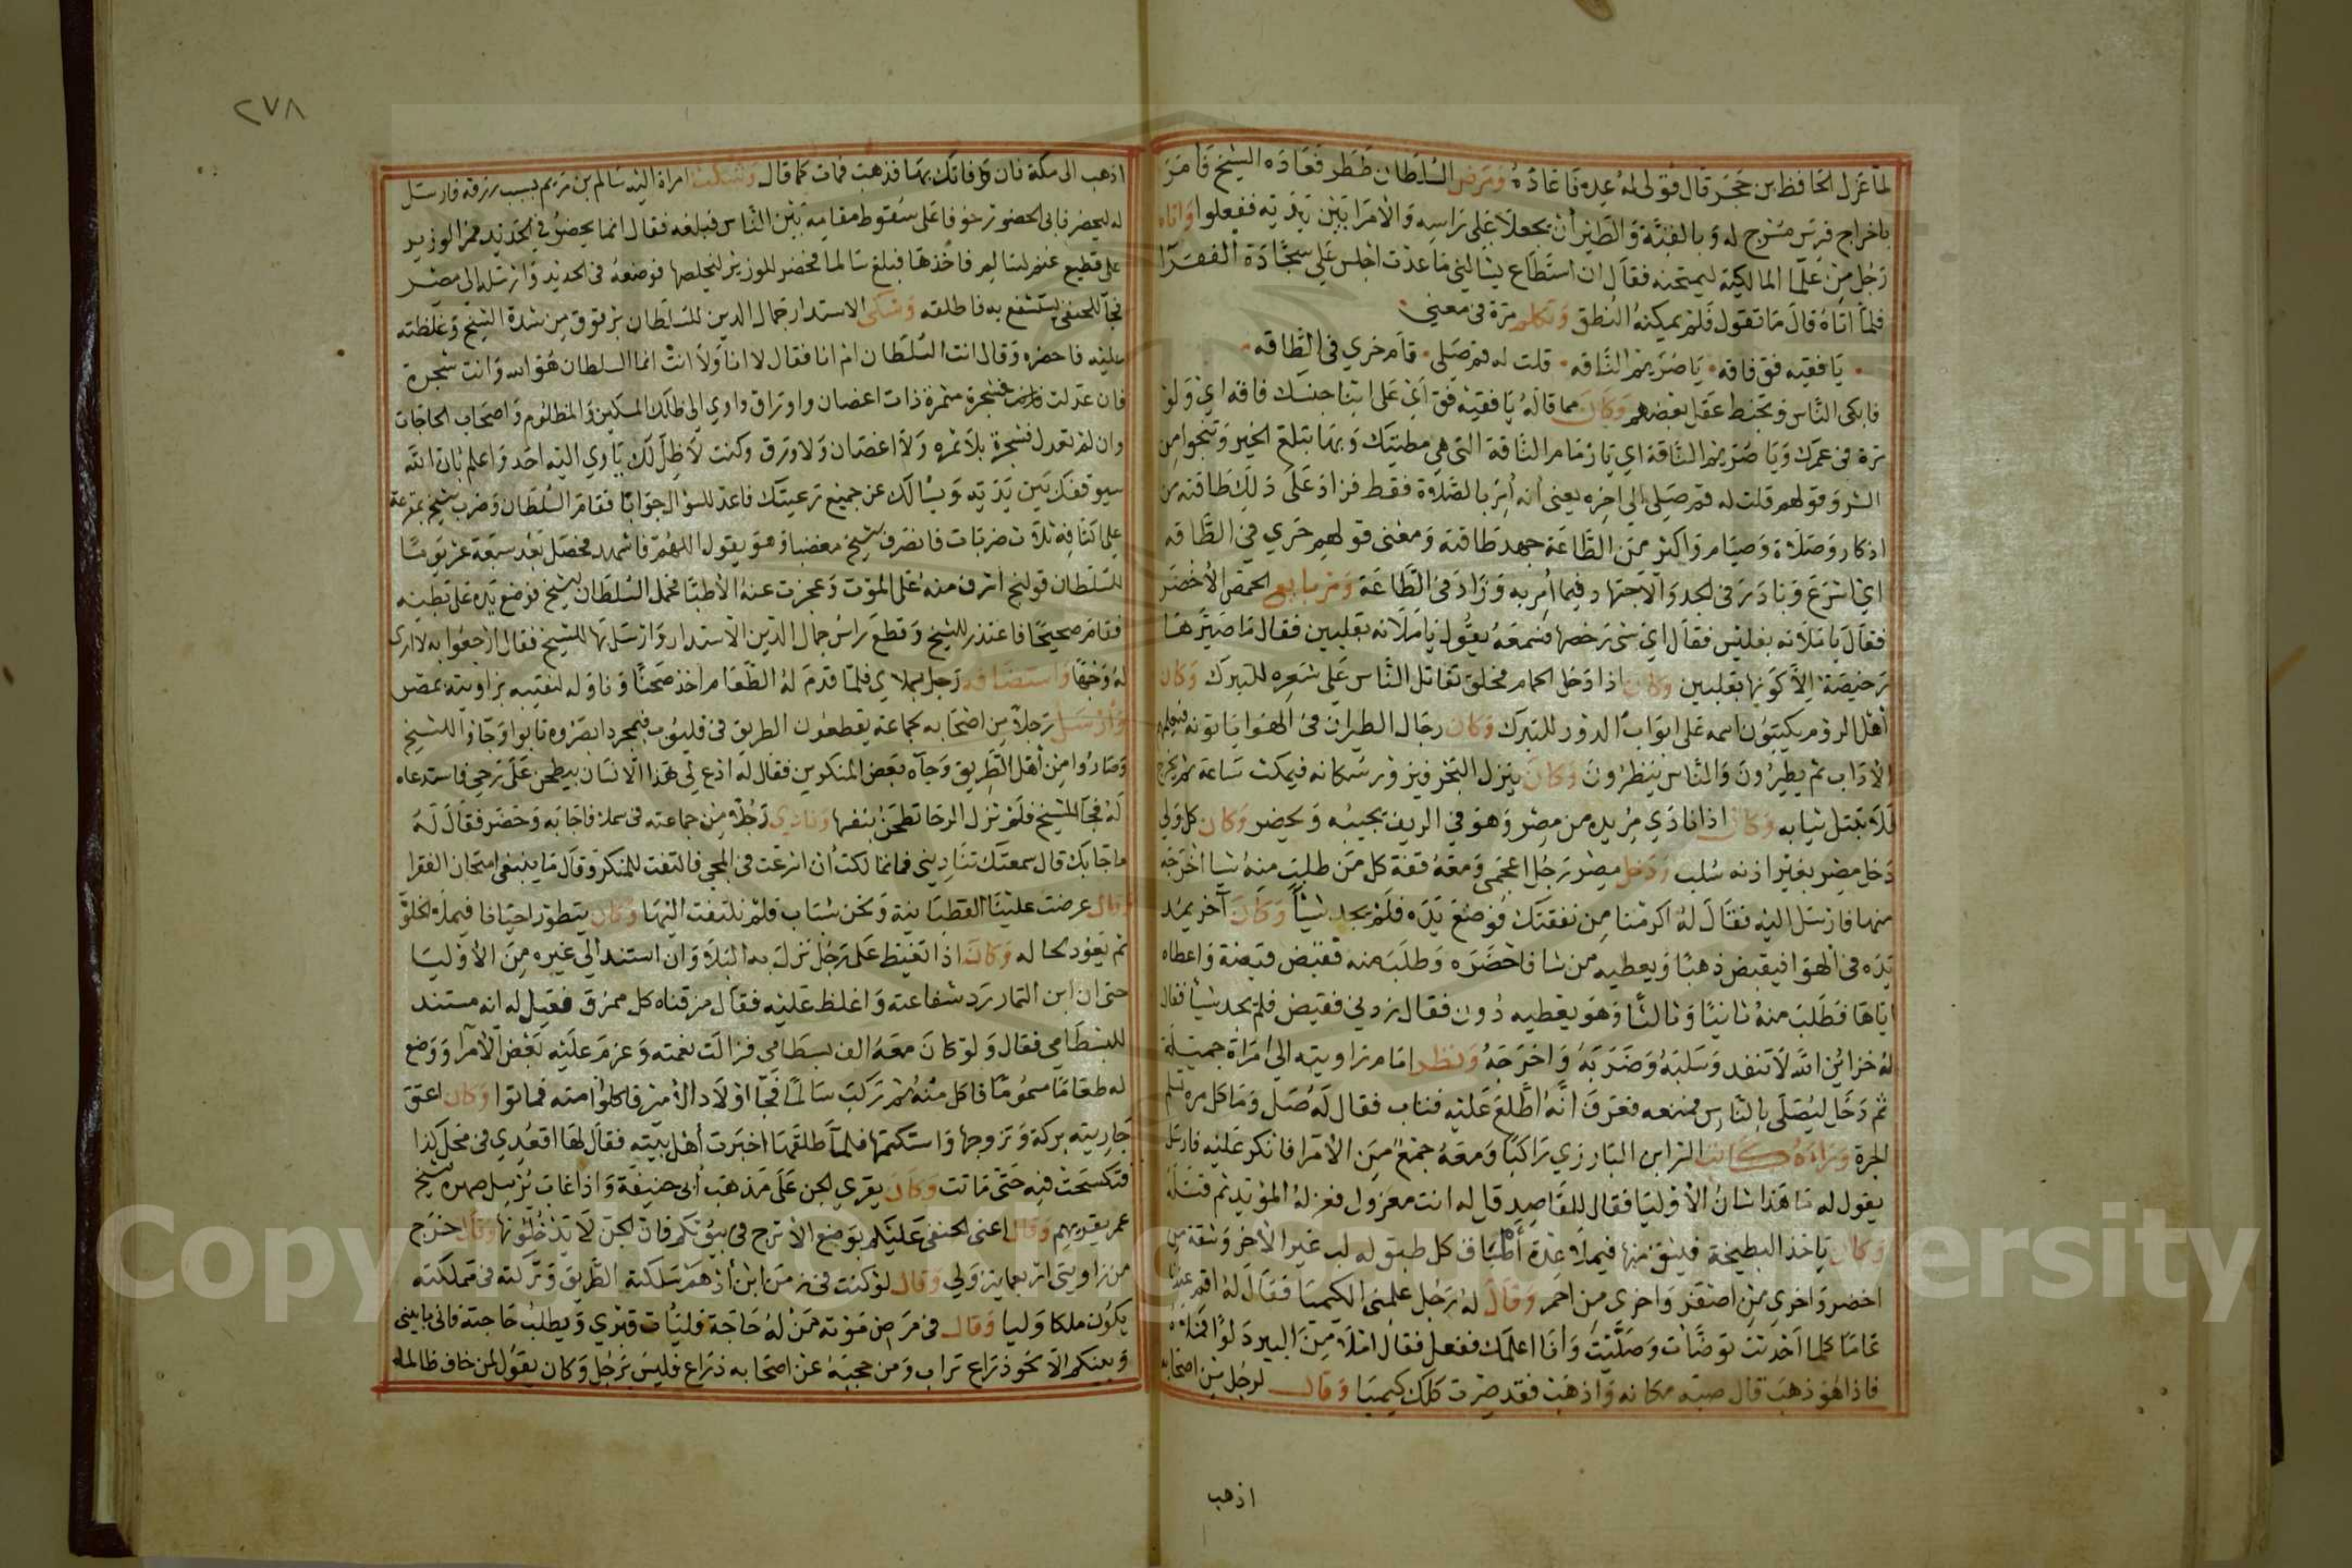 ٢٧٨
لما عزل الحافظ بن حجر قال قولى له عده فاعاده ومرض السلطان ططر فعاده الشيخ فامر
باخراج فرس مسرج له وبالقبة والطير أن يجعلا على راسه والامرا بين يديه ففعلوا واتاه
رجل من علما المالكية ليمتحنه فقال ان استطاع يسالني ما عدت اجلس على سجادة الفقرا
فلما اتاه قال ما تقول فلم يمكنه النطق وتكلم مرة فى معنى
يا فقيه فق فاقه يا ضريم الناقه قلت له قم صلى قام خري في الطاقه
فابكى الناس وتخبط عقل بعضهم وكان مما قاله يا فقيه فق اي على ابنا جنسك فاقه اي ولو
مرة فى عمرك ويا ضريم الناقة اي يا زمام الناقة التى هي مطيتك وبها تبلغ الخير وتنجوا من
الشر وقولهم قلت له قم صلى الى اخره يعنى أنه أمر بالصلاة فقط فزاد على ذلك طاقته من
اذكار وصلاة وصيام واكثر من الطاعة جهد طاقته ومعنى قولهم خري في الطاقه
اي اسرع وبادر فى الجد والاجتهاد فيما أمر به وزاد فى الطاعة ومر بايع الحمص الأخضر
فقال يا ملانه بفليس فقال اي شى رخصها فسمعه يقول يا ملانه بقلبين فقال ما صيرها
رخيصة الا كونها بقلبين وكان اذا دخل الحمام فحلق تقاتل الناس على شعره للتبرك وكان
أهل الروم يكتبون اسمه على ابواب الدور للتبرك وكان رجال الطيران فى الهوا ياتونه فيعلمهم
الاداب ثم يطيرون والناس ينظرون وكان ينزل البحر فيزور سكانه فيمكث ساعة ثم يخرج
فلا تبتل ثيابه وكان اذا نادي مريده من مصر وهو في الريف يجيبه ويحضر وكان كل ولي
دخل مصر بغير اذنه سلب ودخل مصر رجل اعجمى ومعه قفة كل من طلب منه شيا اخرجه
منها فارسل اليه فقال له اكرمنا من نفقتك فوضع يده فلم يجد شيأ وكان آخر يمد
يده فى الهوا فيقبض ذهبا ويعطيه من شا فاحضره وطلب منه فقبض قبضة واعطاه
اياها فطلب منه ثانيا وثالثا وهو يعطيه دون فقال زدنى فقبض فلم يجد شيئا فقال
له خزائن الله لا تنفد وسلبه وضربه واخرجه ونظر امام زاويته الى امراة جميلة
ثم دخل ليصلى بالناس فمنعه فعرف انه اطلع عليه فتاب فقال له صل وما كل مره تسلم
الجرة وراه كاتب السر ابن البارزي راكبا ومعه جمع من الامرا فانكر عليه فارسل
يقول له ما هذا شان الأوليا فقال للقاصد قل له انت معزول فعزله المؤيد ثم قتله
وكان ياخذ البطيخة فيشق منها فيملا عدة أطباق كل طبق له لب غير الأخر وشقة من
اخضر واخرى من اصفر واخرى من احمر وقال له رجل علمنى الكيميا فقال له اقم عندنا
عاما كلما احدثت توضات وصليت وانا اعلمك ففعل فقال املا من البير دلوا فملاه
فاذا هو ذهب قال صبه مكانه واذهب فقد صرت كلك كيميا وقال لرجل من اصحابه
اذهب
اذهب الى مكة فان وفاتك بها فذهب فمات كما قال وشكت امراة اليه سالم بن مريم بسبب رزقه فارسل
له ليحضر فابى الحضور خوفا على سقوط مقامه بين الناس فبلغه فقال انما يحضر في الحديد فمر الوزير
على قطيع غنم لسالم فاخذها فبلغ سالما فحضر للوزير ليخلصها فوضعه فى الحديد وارسله الى مصر
فجآ للحنفى يستشفع به فاطلقه وشكى الاستدار جمال الدين للسلطان برقوق من شدة الشيخ وغلظته
عليه فاحضره وقال انت السلطان ام انا فقال لا انا ولا انت انما السلطان هو الله وانت شجرة
فان عدلت فشجرة مثمرة ذات اغصان واوراق واوي الى ظلك المسكين والمظلوم واصحاب الحاجات
وان لم تعدل فشجرة بلا ثمره ولا اغصان ولا ورق وكنت لا ظل لك ياوي اليه احد واعلم بان الله
سيوقفك بين يديه ويسالك عن جميع رعيتك فاعد للسؤال جوابا فقام السلطان وضرب الشيخ بمقرعة
على كتافه ثلاث ضربات فانصرف الشيخ مغضبا وهو يقول اللهم فاشهد فحصل بعد سبعة عشر يوما
للسلطان قولنج اشرف منه على الموت وعجزت عنه الأطبا فحمل السلطان للشيخ فوضع يده على بطنه
فقام صحيحا فاعتذر للشيخ وقطع راس جمال الدين الاستدار وارسلها للشيخ فقال ارجعوا به لا ارى
له وجها واستضافه رجل بملاي فلما قدم له الطعام اخذ صحنا وناوله لنقيبه بزاويته بمصر
وأرسل رجلا من اصحابه لجماعة يقطعون الطريق فى قليوب فبمجرد ابصروه تابوا وجاؤا للشيخ
وصاروا من أهل الطريق وجآه بعض المنكرين فقال له ادع لى هذا الانسان يطحن على رحي فاستدعاه
له فجآ للشيخ فلم تزل الرحا تطحن بنفسها ونادي رجلا من جماعته فى سلا فاجابه وحضر فقال له
ما جابك قال سمعتك تناديني فما تمالكت أن اسرعت فى المجى فالتفت للمنكر وقال ما ينبغى امتحان الفقرا
وقال عرضت علينا القطبانية ونحن شباب فلم نلتفت اليها وكان يتطور احيانا فيملا الخلوة
ثم يعود لحاله وكان اذا تغيظ على رجل نزل به البلا وان استند الى غيره من الأوليا
حتى ان ابن التمار رد شفاعته واغلظ عليه فقال مزقناه كل ممزق فقيل له انه مستند
للبسطامي فقال ولو كان معه الف بسطامي فزالت نعمته وعزم عليه بعض الأمرا ووضع
له طعاما مسموما فاكل منه ثم ركب سالما فجآ اولاد الامير فاكلوا منه فماتوا وكان اعتق
جاريته بركة وتزوجها واستكتمها فلما طلقها اخبرت أهل بيته فقال لها اقعدي فى محل كذا
فتكسحت فيه حتى ماتت وكان يقري الجن على مذهب أبى حنيفة واذا غاب يرسل صهره الشيخ
عمر يقريهم وقال اعنى الحنفى عليكم بوضع الأترج فى بيوتكم فان الجن لا يدخلونها وقال خرج
من زاويتى اربعماية ولى وقال لو كنت فى زمن ابن أدهم سلكته الطريق وتركته فى مملكته
يكون ملكا وليا وقال فى مرض موته من له حاجة فليأت قبري ويطلب حاجته فانى ما بينى
وبينكم الا نحو ذراع تراب ومن حجبه عن اصحابه ذراع فليس برجل وكان يقول لمن خاف ظالما